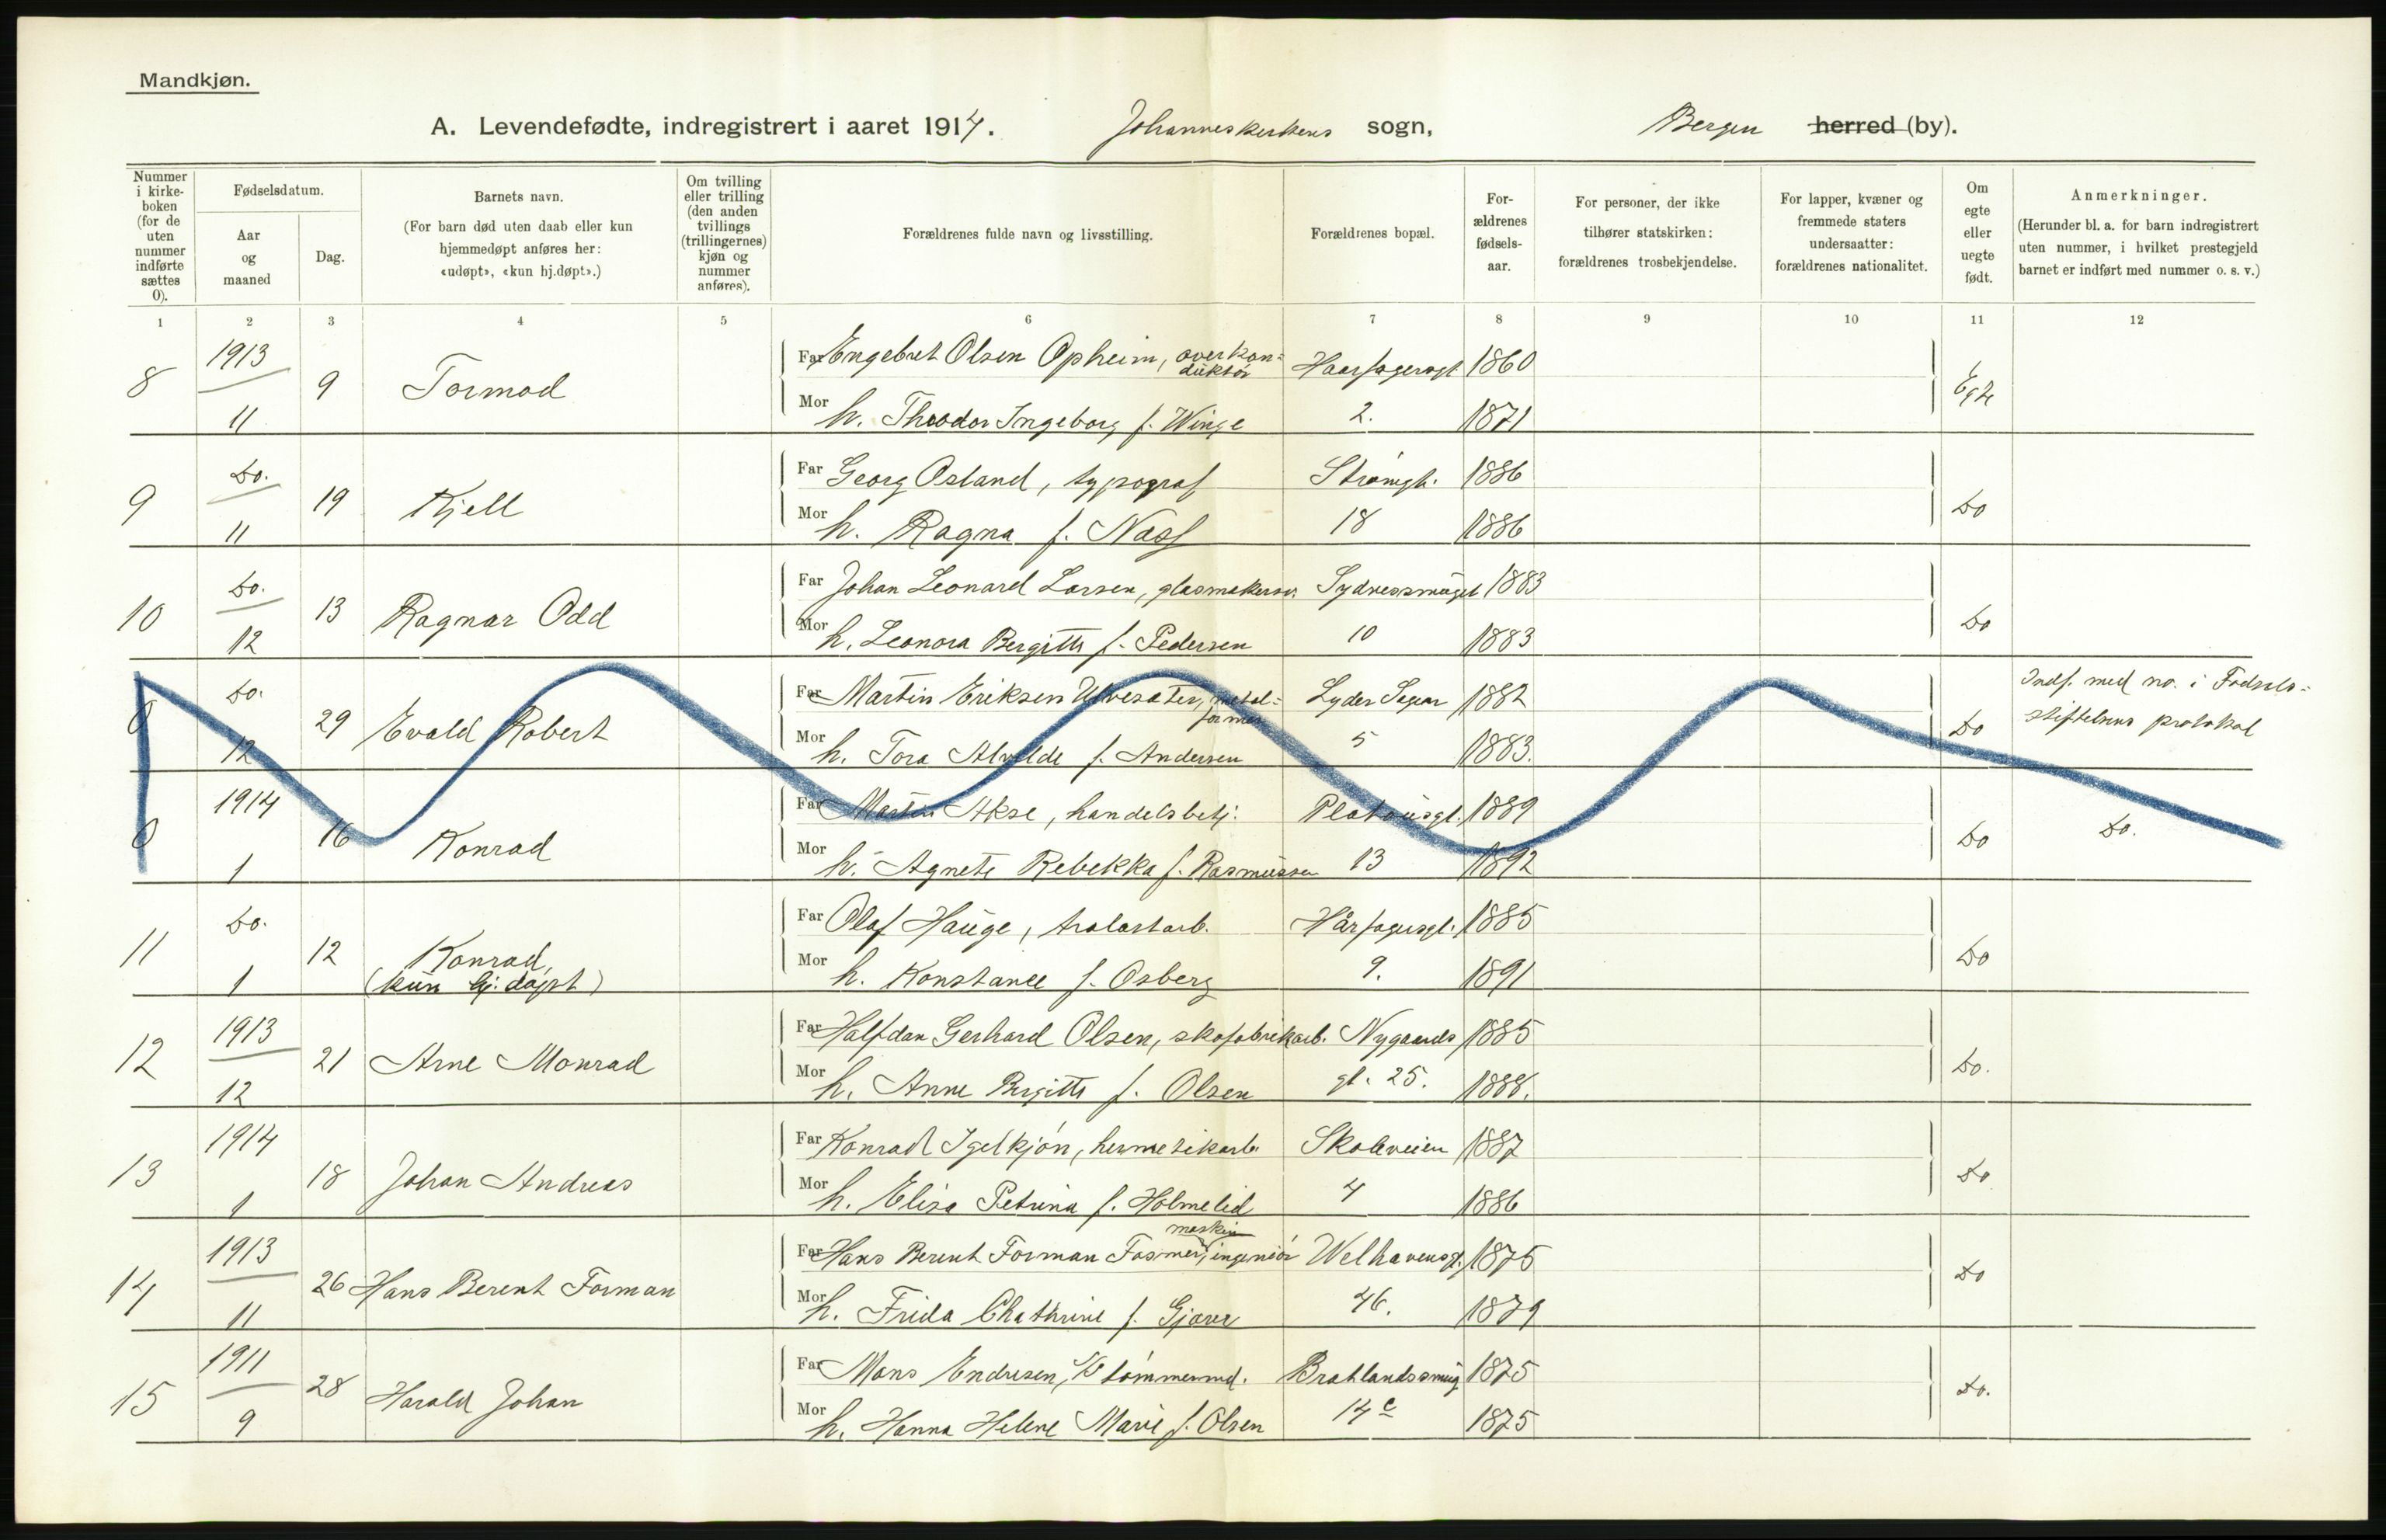 Mandkjøn.
A. Levendefødte, indregistrert i aaret 1914. Johanneskirkens sogn, Bergen herred (by).
Nummer i kirke-boken (for de uten nummer indførte sættes 0).
Fødselsdatum.
Aar og maaned
Dag.
Barnets navn.
(For barn død uten daab eller kun hjemmedøpt anføres her: «udøpt», «kun hj.døpt».)
Om tvilling eller trilling (den anden tvillings (trillingernes) kjøn og nummer anføres).
Forældrenes fulde navn og livsstilling.
Forældrenes bopæl.
For-ældrenes fødsels-aar.
For personer, der ikke tilhører statskirken: forældrenes trosbekjendelse.
For lapper, kvæner og fremmede staters undersaatter: forældrenes nationalitet.
Om egte eller uegte født.
Anmerkninger.
(Herunder bl. a. for barn indregistrert uten nummer, i hvilket prestegjeld barnet er indført med nummer o. s. v.)
1 2 3 4 5 6 7 8 9 10 11 12
8 1913 11 9 Tormod Far Engebret Olsen Opheim, overkon=duktør Haarfagersgt 1860 Egte
Mor h. Theodor Ingeborg f. Winge 2. 1871
9 Do. 11 19 Kjell Far Georg Osland, typograf Strømgt. 1886 Do
Mor h. Ragna f. Næss 18 1886
10 Do. 12 13 Ragnar Odd Far Johan Leonard Larsen, glasmakersv. Sydnessmuget 1883 Do
Mor h. Leonora Bergitte f. Pedersen 10 1883
0 Do. 12 29 Evald Robert Far Martin Eriksen Ulvesæter, metal=former Lyder Sagen 1882 Do Indf. med no. i Fødsels=
stiftelsens protokol
Mor h. Tora Alvilde f. Andersen 5 1883.
0 1914 1 16 Konrad Far Martin Akse, handelsbetj. Platousgt. 1889 Do Do.
Mor h. Agnete Rebekka f. Rasmussen 13 1892
11 Do. 1 12 Konrad, (kun hj. døpt) Far Olaf Hauge, tralastarb. Hårfagersgt. 1885 Do
Mor h. Konstance f. Osberg 9. 1891
12 1913 12 21 Arne Monrad Far Halfdan Gerhard Olsen, skofabrikarb. Nygaards 1885 Do.
Mor h. Anne Bergitte f. Olsen gt. 25. 1888.
13 1914 1 18 Johan Andreas Far Konrad Igelkjøn, hermetikarb. Skoleveien 1887 Do
Mor h. Elisa Petrina f. Holmelid 4 1886
14 1913 11 26 Hans Berent Forman Far Hans Berent Forman Fasmer, maskin ingeniør Welhavensgt. 1875 Do
Mor h. Frida Chathrine f. Gjæver 46. 1879
15 1911 9 28 Harald Johan Far Mons Endresen, tømmermd. Bratlandssmug 1875 Do.
Mor h. Hanna Helene Marie f. Olsen 14c 1875